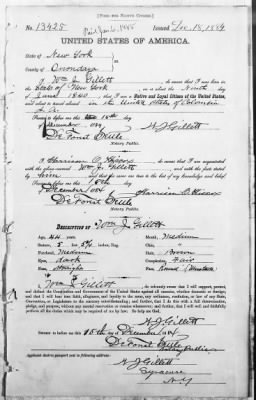 [FORM FOR NATIVE CITIZEN.]
No. 13425 Issued Dec. 18, 1884
UNITED STATES OF AMERICA.
State of New York
County of Onondaga
I, Wm J. Gillett, do swear that I was born
in the State of New York on or about the Ninth day
of 1840; that I am a Native and Loyal Citizen of the United States,
and about to travel abroad in the United States of Colombia
S. A.
Sworn to before me this 15th day
of December 1884 W J Gillett
De Forest Settle
Notary Public.
I, Harrison, do swear that I am acquainted
with the above named Wm J. Gillett, and with the facts stated
by him and that the same are true to the best of my knowledge and belief.
Sworn to before me this 15th day
of December 1884 Harrison
De Forest Settle
Notary Public.
DESCRIPTION OF Wm J. Gillett
Age, 44 years. Mouth, Medium
Stature, 5 feet inches, Eng. Chin,
Forehead, Medium Hair, Brown
Eyes, Dark Complexion, Fair
Nose, Straight Face, Round
I, Wm J. Gillett, do solemnly swear that I will support, protect,
and defend the Constitution and Government of the United States against all enemies, whether domestic or foreign,
and that I will bear true faith, allegiance, and loyalty to the same, any ordinance, resolution, or law of any State,
Convention, or Legislature to the contrary notwithstanding; and further, that I do this with a full determination,
pledge, and purpose, without any mental reservation or evasion whatsoever; and further, that I will well and faithfully
perform all the duties which may be required of me by law: So help me God.
W J Gillett
Sworn to before me this 15th day of December 1884
De Forest Settle
Notary Public
Applicant desires passport sent to following address:
W J Gillett
Syracuse
N.Y.